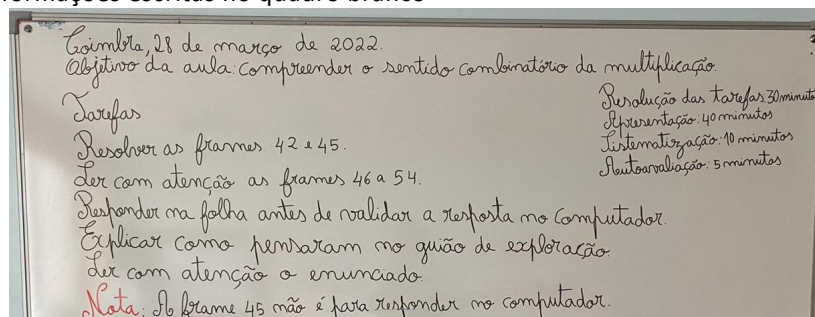 formações escritas no quadro branco
Coimbra, 28 de março de 2022.
Objetivo da aula: Compreender o sentido combinatório da multiplicação.
Tarefas
Resolver as frames 42 e 45.
Ler com atenção as frames 46 a 54.
Responder na folha antes de validar a resposta no computador.
Explicar como pensaram no guião de exploração.
Ler com atenção o enunciado.
Nota: A frame 45 não é para responder no computador.
Resolução das tarefas: 30 minuto
Apresentação: 40 minutos
Sistematização: 10 minutos
Autoavaliação: 5 minutos